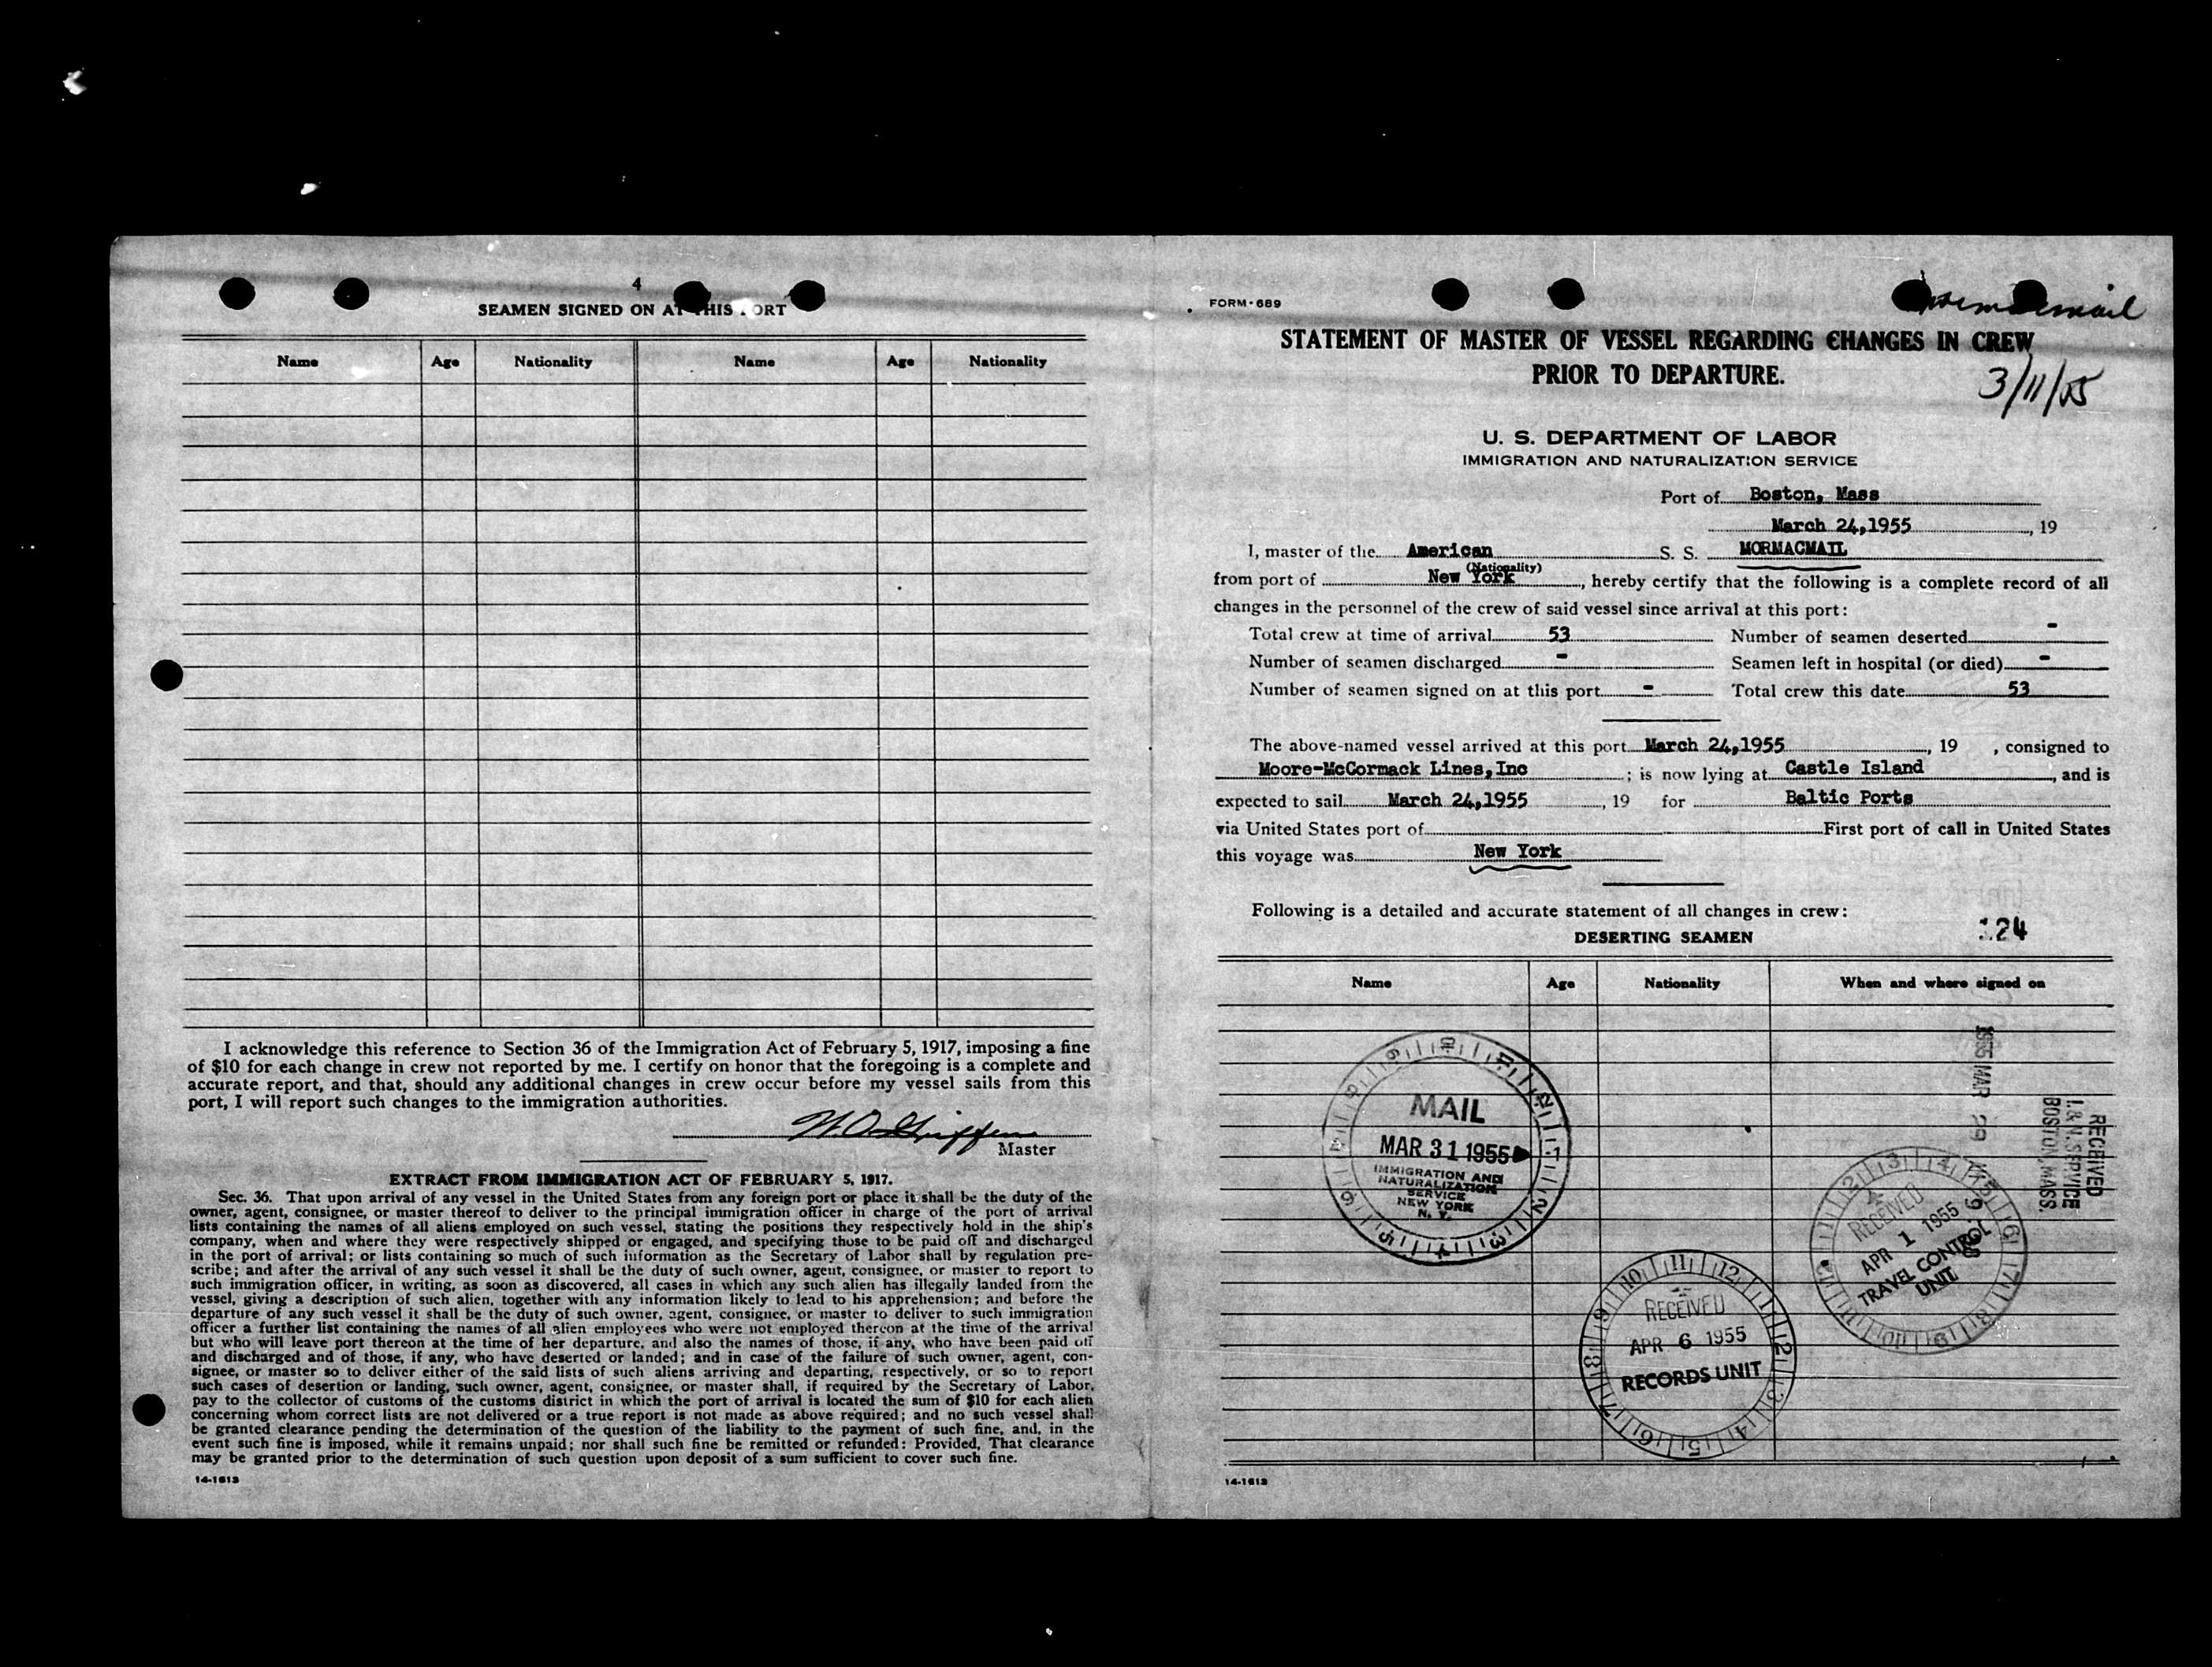 4
SEAMEN SIGNED ON AT THIS PORT
Name Age Nationality Name Age Nationality
I acknowledge this reference to Section 36 of the Immigration Act of February 5, 1917, imposing a fine
of $10 for each change in crew not reported by me. I certify on honor that the foregoing is a complete and
accurate report, and that, should any additional changes in crew occur before my vessel sails from this
port, I will report such changes to the immigration authorities.
Master
EXTRACT FROM IMMIGRATION ACT OF FEBRUARY 5, 1917.
Sec. 36. That upon arrival of any vessel in the United States from any foreign port or place it shall be the duty of the
owner, agent, consignee, or master thereof to deliver to the principal immigration officer in charge of the port of arrival
lists containing the names of all aliens employed on such vessel, stating the positions they respectively hold in the ship's
company, when and where they were respectively shipped or engaged, and specifying those to be paid off and discharged
in the port of arrival; or lists containing so much of such information as the Secretary of Labor shall by regulation pre-
scribe; and after the arrival of any such vessel it shall be the duty of such owner, agent, consignee, or master to report to
such immigration officer, in writing, as soon as discovered, all cases in which any such alien has illegally landed from the
vessel, giving a description of such alien, together with any information likely to lead to his apprehension; and before the
departure of any such vessel it shall be the duty of such owner, agent, consignee, or master to deliver to such immigration
officer a further list containing the names of all alien employees who were not employed thereon at the time of the arrival
but who will leave port thereon at the time of her departure, and also the names of those, if any, who have been paid off
and discharged and of those, if any, who have deserted or landed; and in case of the failure of such owner, agent, con-
signee, or master so to deliver either of the said lists of such aliens arriving and departing, respectively, or so to report
such cases of desertion or landing, such owner, agent, consignee, or master shall, if required by the Secretary of Labor,
pay to the collector of customs of the customs district in which the port of arrival is located the sum of $10 for each alien
concerning whom correct lists are not delivered or a true report is not made as above required; and no such vessel shall
be granted clearance pending the determination of the question of the liability to the payment of such fine, and, in the
event such fine is imposed, while it remains unpaid; nor shall such fine be remitted or refunded: Provided, That clearance
may be granted prior to the determination of such question upon deposit of a sum sufficient to cover such fine.
14-1613
FORM-689
STATEMENT OF MASTER OF VESSEL REGARDING CHANGES IN CREW
PRIOR TO DEPARTURE.
3/11/55
U. S. DEPARTMENT OF LABOR
IMMIGRATION AND NATURALIZATION SERVICE
Port of Boston, Mass
March 24,1955, 19
I, master of the American S. S. MORMACMAIL
(Nationality)
from port of New York, hereby certify that the following is a complete record of all
changes in the personnel of the crew of said vessel since arrival at this port:
Total crew at time of arrival 53 Number of seamen deserted -
Number of seamen discharged - Seamen left in hospital (or died) -
Number of seamen signed on at this port - Total crew this date 53
The above-named vessel arrived at this port March 24,1955, 19 , consigned to
Moore-McCormack Lines,Inc; is now lying at Castle Island, and is
expected to sail March 24,1955, 19 for Baltic Ports
via United States port of First port of call in United States
this voyage was New York
Following is a detailed and accurate statement of all changes in crew:
124
DESERTING SEAMEN
Name Age Nationality When and where signed on
MAIL
MAR 31 1955
IMMIGRATION AND
NATURALIZATION
SERVICE
NEW YORK
N. Y.
RECEIVED
APR 6 1955
RECORDS UNIT
RECEIVED
APR 1 1955
TRAVEL CONTROL
UNIT
RECEIVED
I. & N. SERVICE
BOSTON, MASS.
1955 MAR 29
14-1613